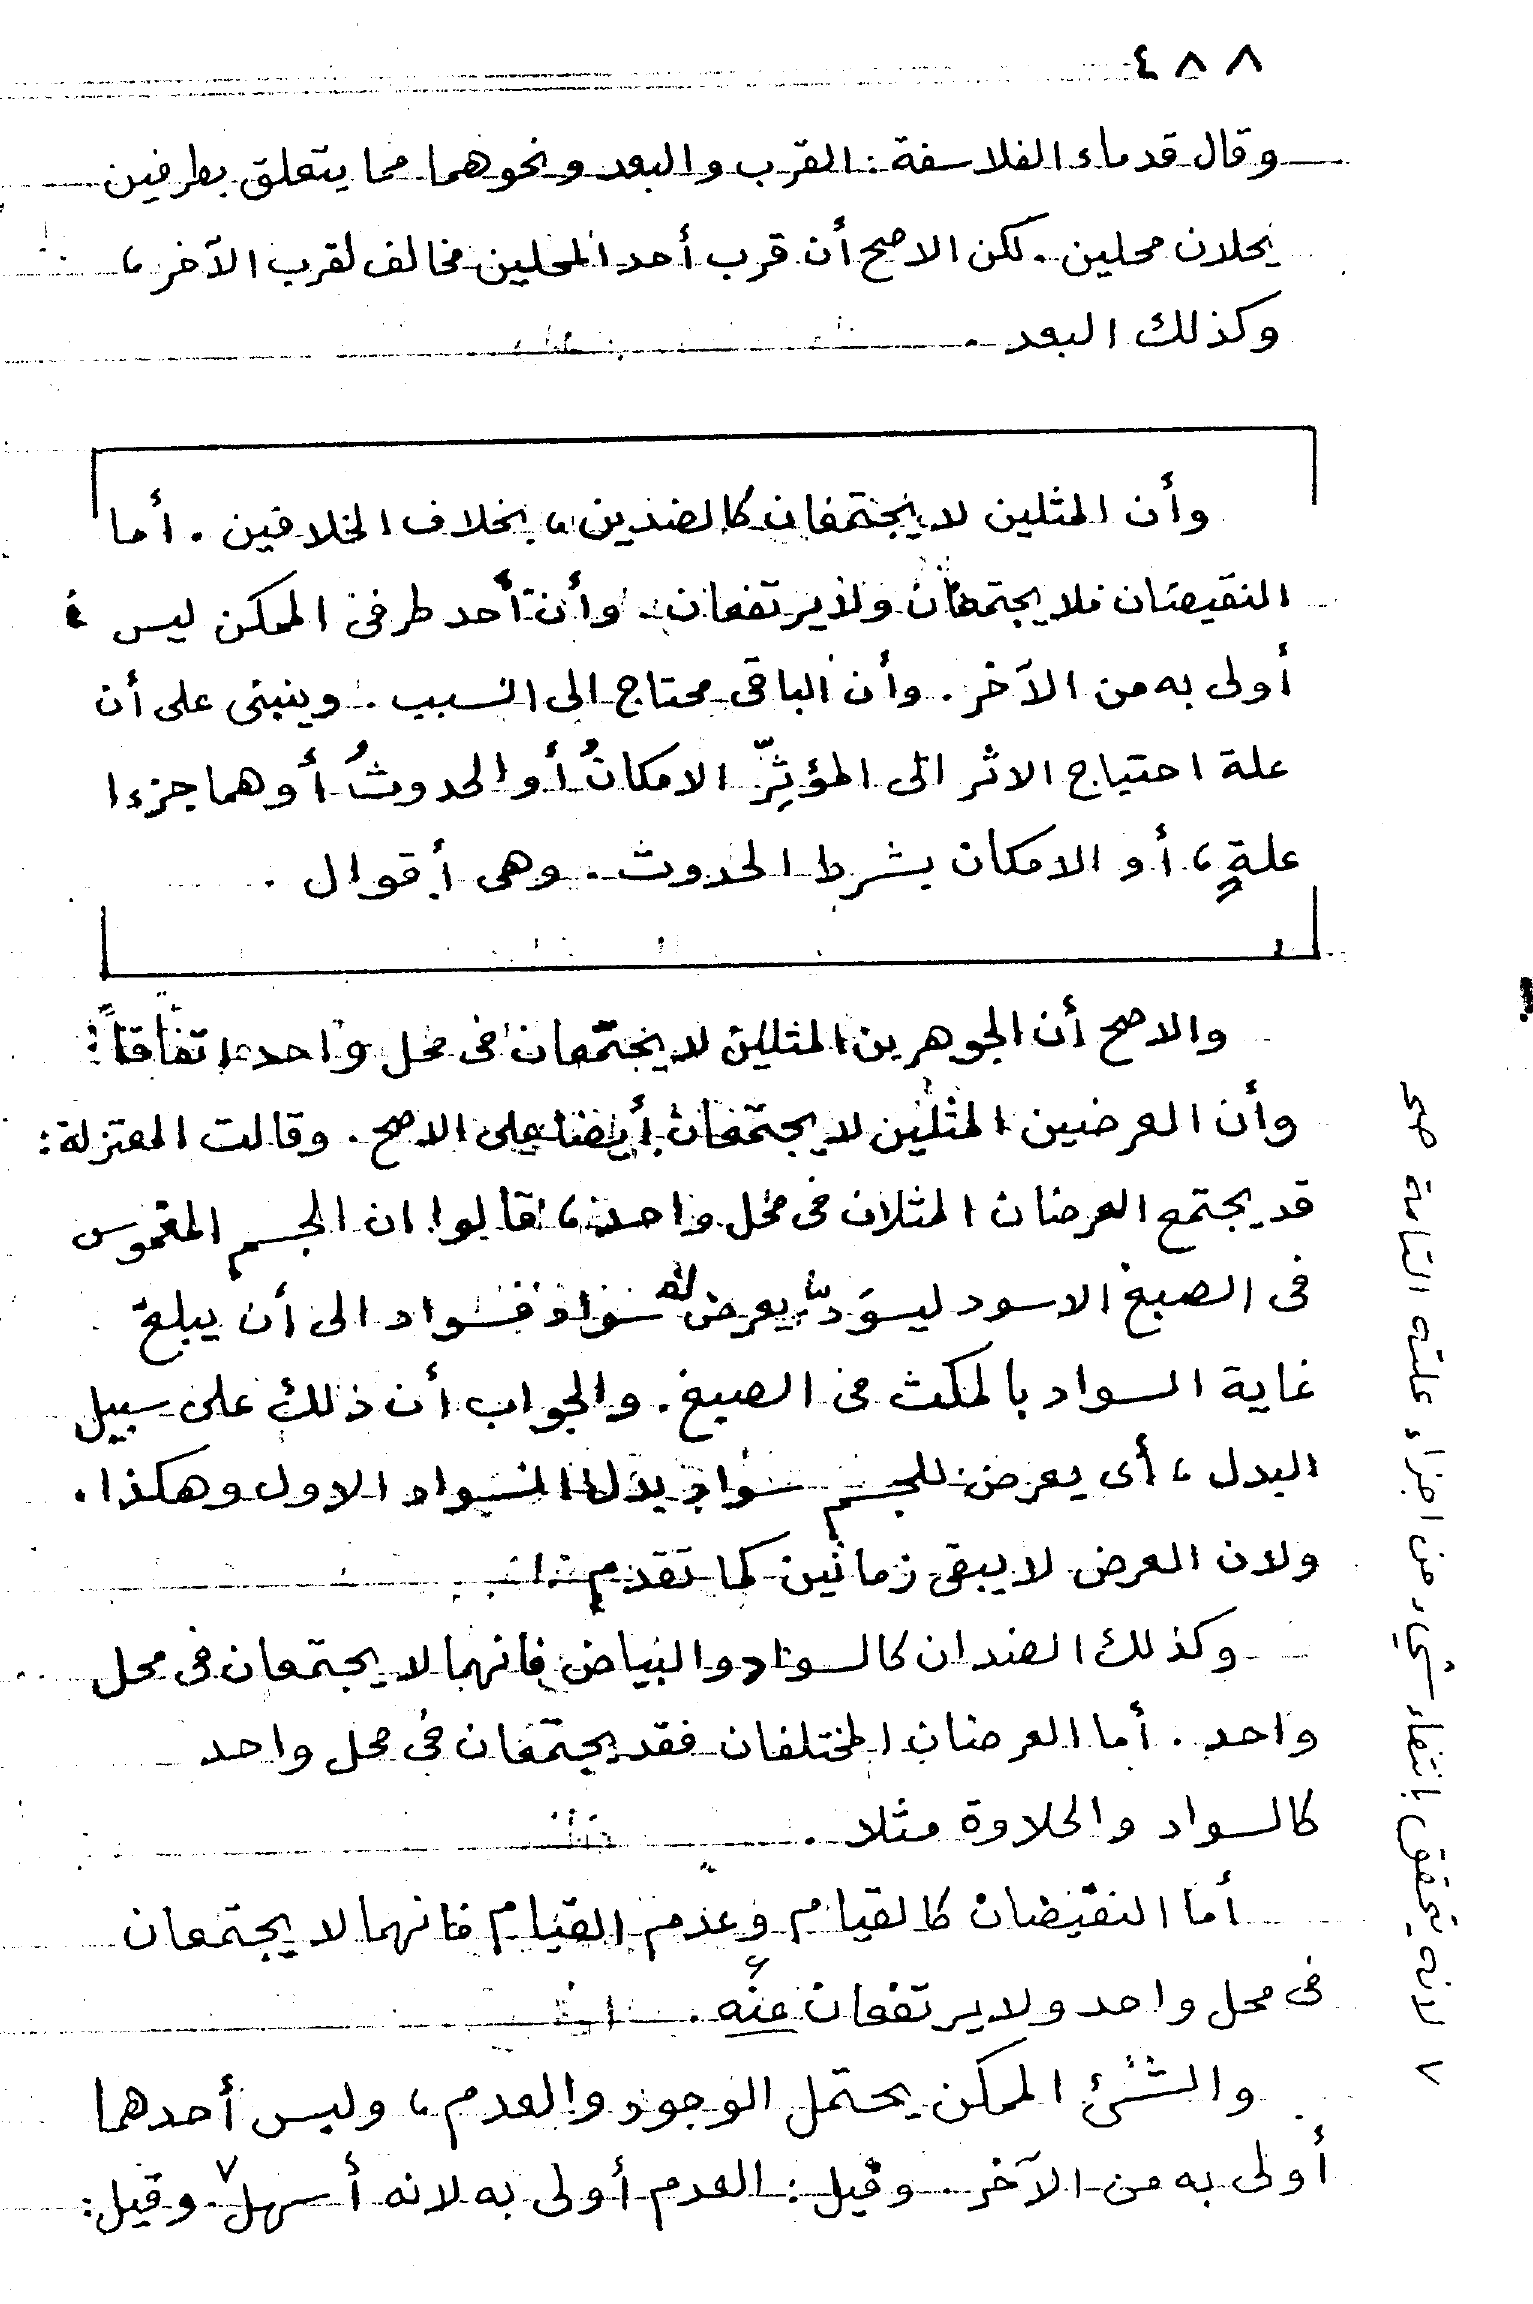 ٤٨٨
وقال قدماء الفلاسفة: القرب والبعد ونحوهما مما يتعلق بطرفين
يحلان محلين. لكن الاصح أن قرب أحد المحلين مخالف لقرب الآخر،
وكذلك البعد.
وأن المثلين لا يجتمعان كالضدين، بخلاف الخلافين. أما
النقيضان فلا يجتمعان ولا يرتفعان. وأن أحد طرفى الممكن ليس
أولى به من الآخر. وأن الباقى محتاج الى السبب. وينبنى على أن
علة احتياج الاثر الى المؤثِرّ الامكانُ أو الحدوثُ أو هما جزءا
علةٍ، أو الامكان بشرط الحدوث. وهى أقوال.
والاصح أن الجوهرين المثلين لا يجتمعان فى محل واحد اتفاقاً؛
وأن العرضين المثلين لا يجتمعان أيضا على الاصح. وقالت المعتزلة:
قد يجتمع العرضان المثلان فى محل واحد، قالوا ان الجسم المغموس
فى الصبغ الاسود ليسوَدّ يعرض له سواد فسواد الى أن يبلغ
غاية السواد بالمكث فى الصبغ. والجواب أن ذلك على سبيل
البدل، أى يعرض للجسم سواد بدل السواد الاول وهكذا.
ولان العرض لا يبقى زمانين كما تقدم.
وكذلك الضدان كالسواد والبياض فانهما لا يجتمعان فى محل
واحد. أما العرضان المختلفان فقد يجتمعان فى محل واحد
كالسواد والحلاوة مثلا.
أما النقيضان كالقيام وعدم القيام فانهما لا يجتمعان
فى محل واحد ولا يرتفعان عنه.
والشئ الممكن يحتمل الوجود والعدم، وليس أحدهما
أولى به من الآخر. وقيل: العدم أولى به لانه أسهل٧. وقيل:
٧ لانه يتحقق بانتفاء شىء من اجزاء علته التامة